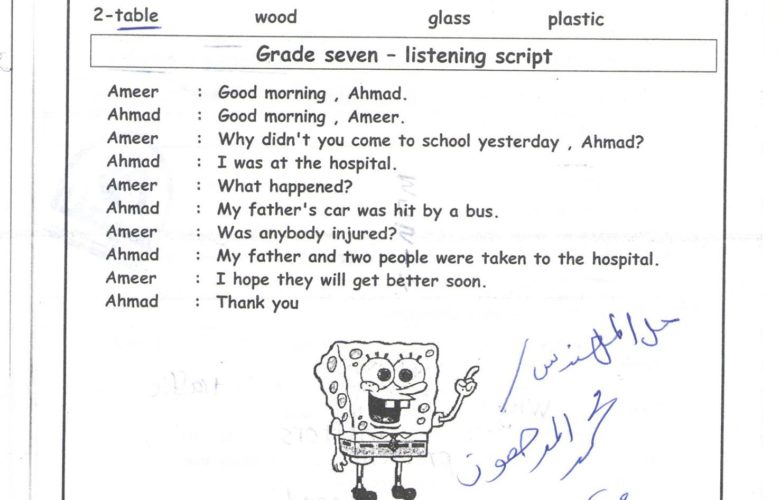 2-table wood glass plastic
Grade seven – listening script
Ameer : Good morning , Ahmad.
Ahmad : Good morning , Ameer.
Ameer : Why didn't you come to school yesterday , Ahmad?
Ahmad : I was at the hospital.
Ameer : What happened?
Ahmad : My father's car was hit by a bus.
Ameer : Was anybody injured?
Ahmad : My father and two people were taken to the hospital.
Ameer : I hope they will get better soon.
Ahmad : Thank you
حل المهندس /
محمد المدهون